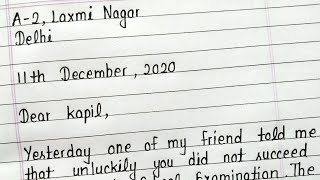 A-2, Laxmi Nagar
Delhi
11th December, 2020
Dear kapil,
Yesterday one of my friend told me
that unluckily you did not succeed
Examination. The